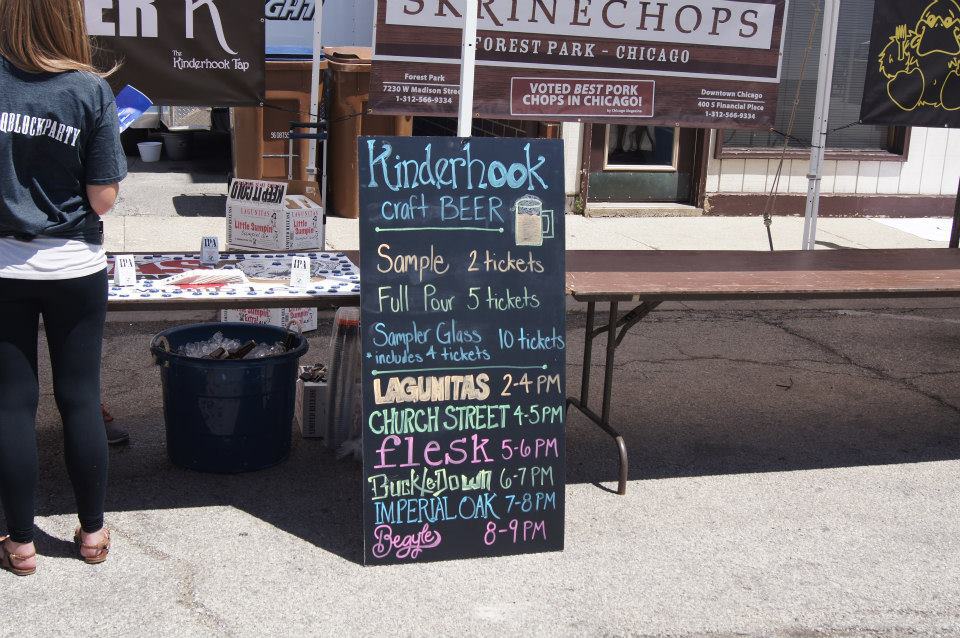 ER K
The
Kinderhook Tap
GHT
SKRINECHOPS
FOREST PARK - CHICAGO
Forest Park
7230 W Madison Street
1-312-566-9334
VOTED BEST PORK
CHOPS IN CHICAGO!
by Chicago Magazine
Downtown Chicago
400 S Financial Place
1-312-566-9334
OBLOCKPARTY
LAGUNITAS
Little Sumpin'
LAGUNITAS
Little Sumpin'
IPA
IPA
IPA
Kinderhook
craft BEER
Sample 2 tickets
Full Pour 5 tickets
Sampler Glass 10 tickets
*includes 4 tickets
LAGUNITAS 2-4 PM
CHURCH STREET 4-5 PM
flesk 5-6 PM
BuckleDown 6-7 PM
IMPERIAL OAK 7-8 PM
Begyle 8-9 PM